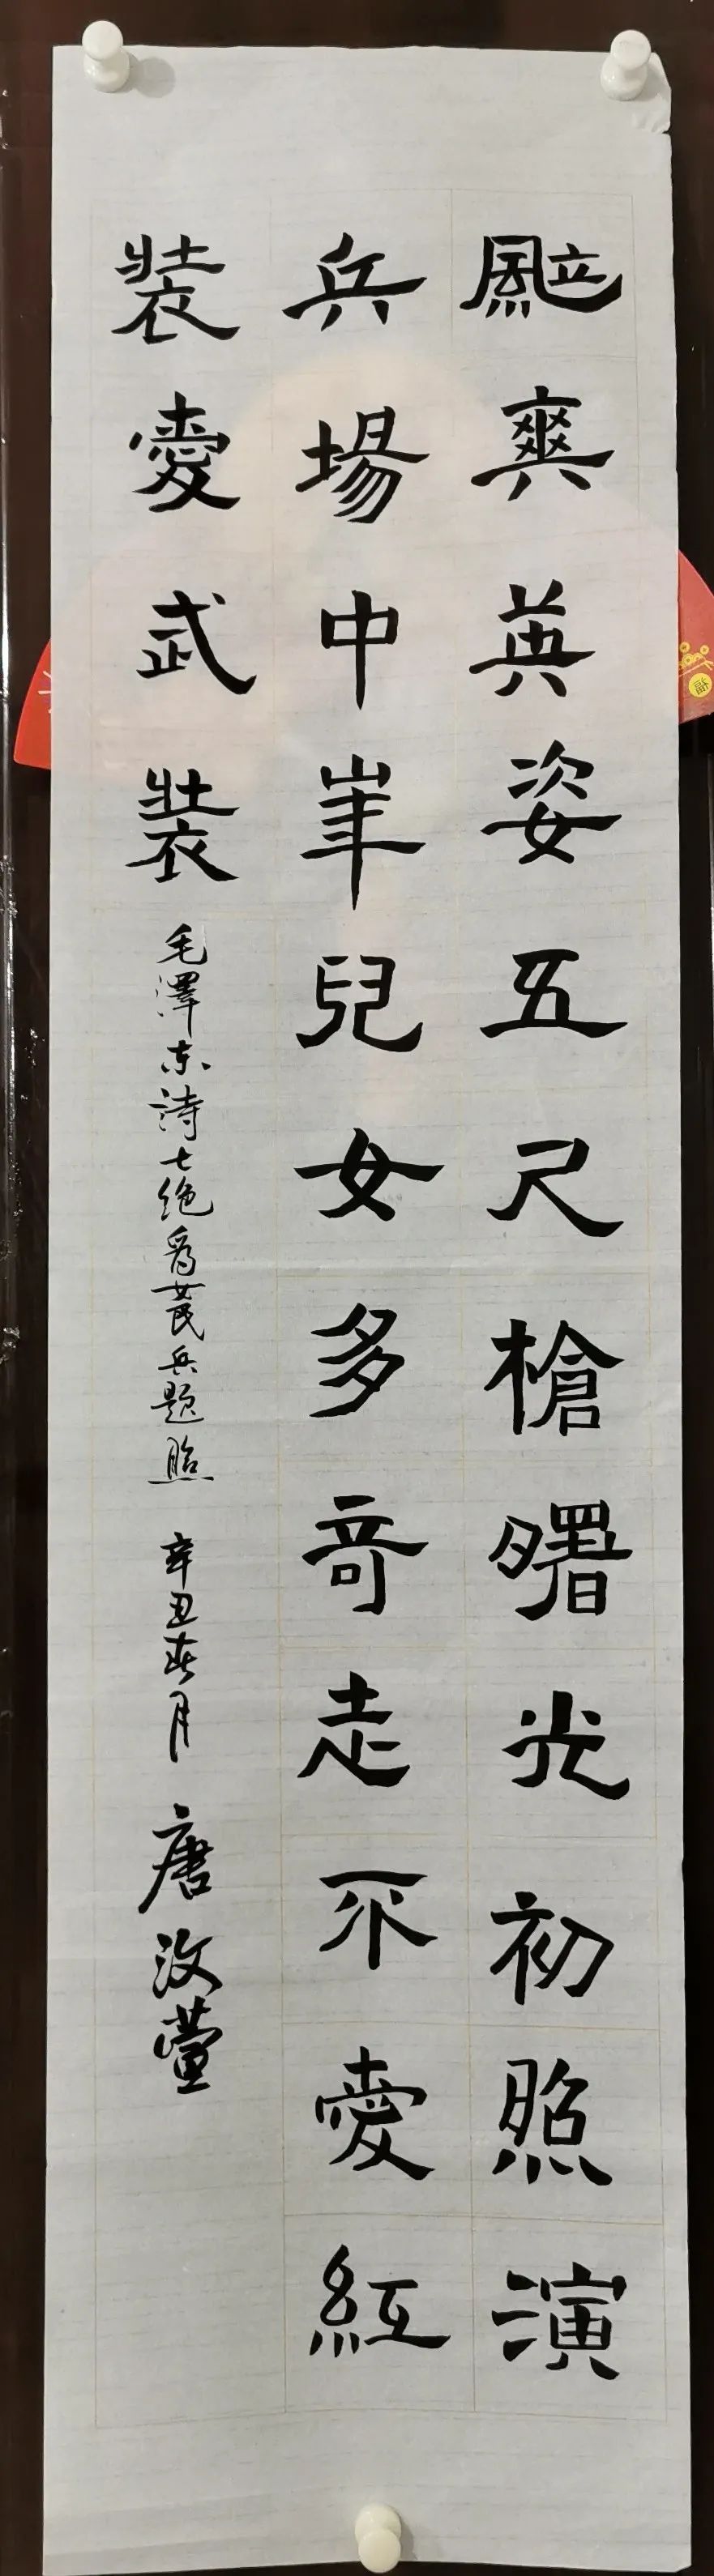 颯爽英姿五尺槍曙光初照演
兵場中華兒女多奇走不愛紅
裝愛武裝 毛澤东詩七绝為女民兵题照 辛丑春月 唐汶萱
福